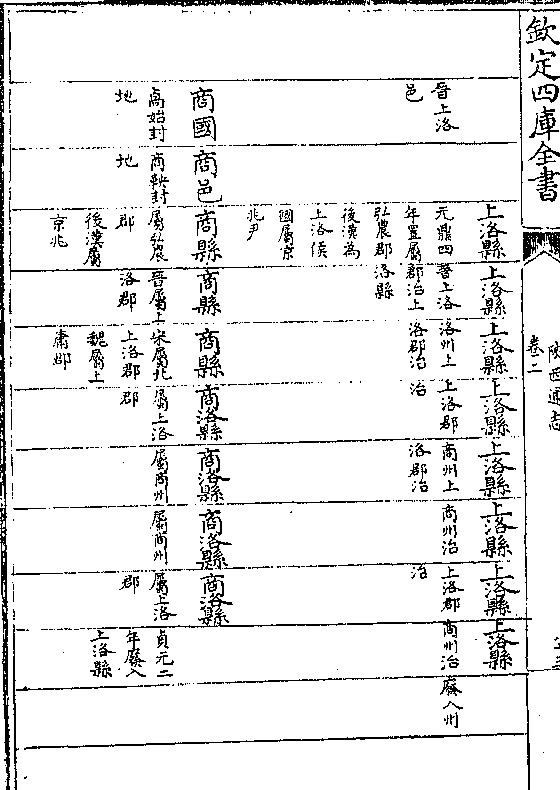 欽定四庫全書
陝西通志
卷二
晉上洛
邑
商國
卨始封
地
商邑
商鞅封
地
上洛縣
元鼎四
年置屬
弘農郡
後漢為
上洛侯
國屬京
兆尹
商縣
屬弘農
郡
後漢屬
京兆
上洛縣
晉上洛
郡治上
洛縣
商縣
晉屬上
洛郡
上洛縣
洛州上
洛郡治
商縣
宋屬北
上洛郡
魏屬上
庸郡
上洛縣
上洛郡
治
商洛縣
屬上洛
郡
上洛縣
商州上
洛郡治
商洛縣
屬商州
上洛縣
商州治
商洛縣
屬商州
上洛縣
上洛郡
治
商洛縣
屬上洛
郡
上洛縣
商州治
貞元二
年廢入
上洛縣
廢入州